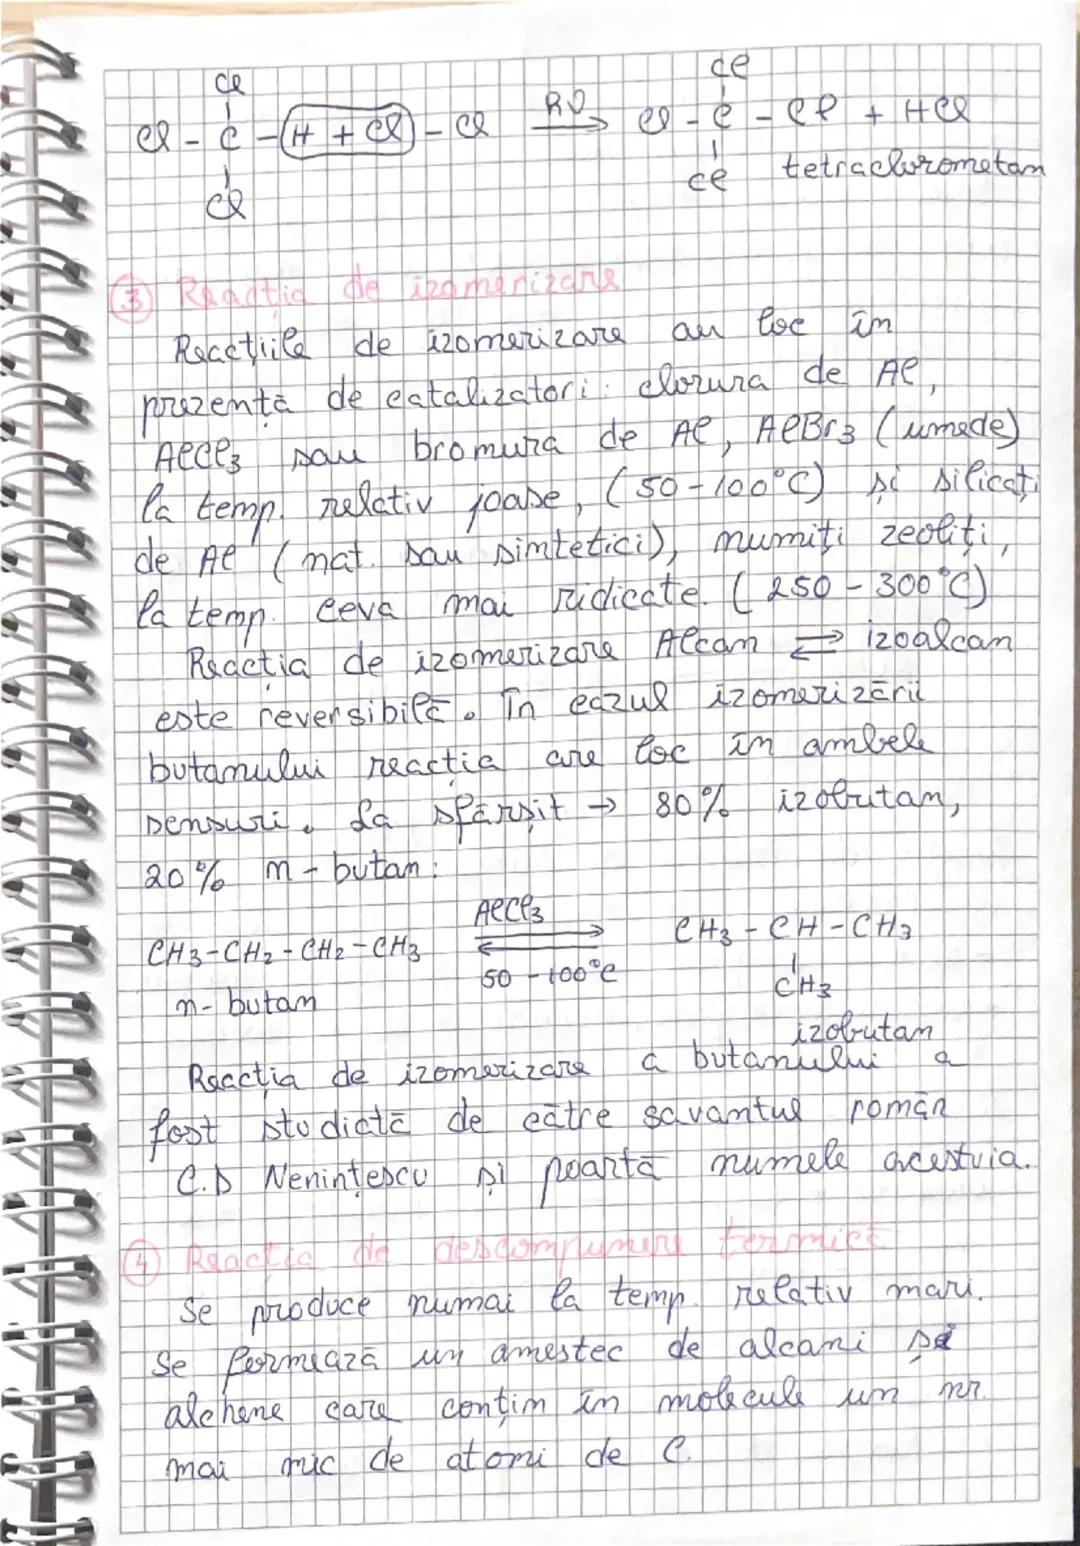 Cl
Cl - C - H + Cl - Cl RV→ Cl - C - Cl + HCl
Cl
Cl
Cl tetraclorometan
③ Reacția de izomerizare
Reacțiile de izomerizare au loc în
prezență de catalizatori: clorura de Al,
AlCl3 sau bromura de Al, AlBr3 (umede)
la temp. relativ joase, (50-100°C) și silicați
de Al (nat. sau sintetici), numiți zeoliți,
la temp. ceva mai ridicate. (250-300°C)
Reacția de izomerizare Alcan ⇄ izoalcan
este reversibilă. În cazul izomerizării
butanului reacția are loc în ambele
sensuri. La sfârșit → 80% izobutan,
20% n-butan:
AlCl3
CH3-CH2-CH2-CH3 ⇄ CH3-CH-CH3
50-100°C CH3
n-butan
izobutan
Reacția de izomerizare a butanului a
fost studiată de către savantul român
C.D Nenințescu și poartă numele acestuia.
④ Reacția de descompunere termică
Se produce numai la temp. relativ mari.
Se formează un amestec de alcani și
alchene care conțin în molecule un nr.
mai mic de atomi de C.